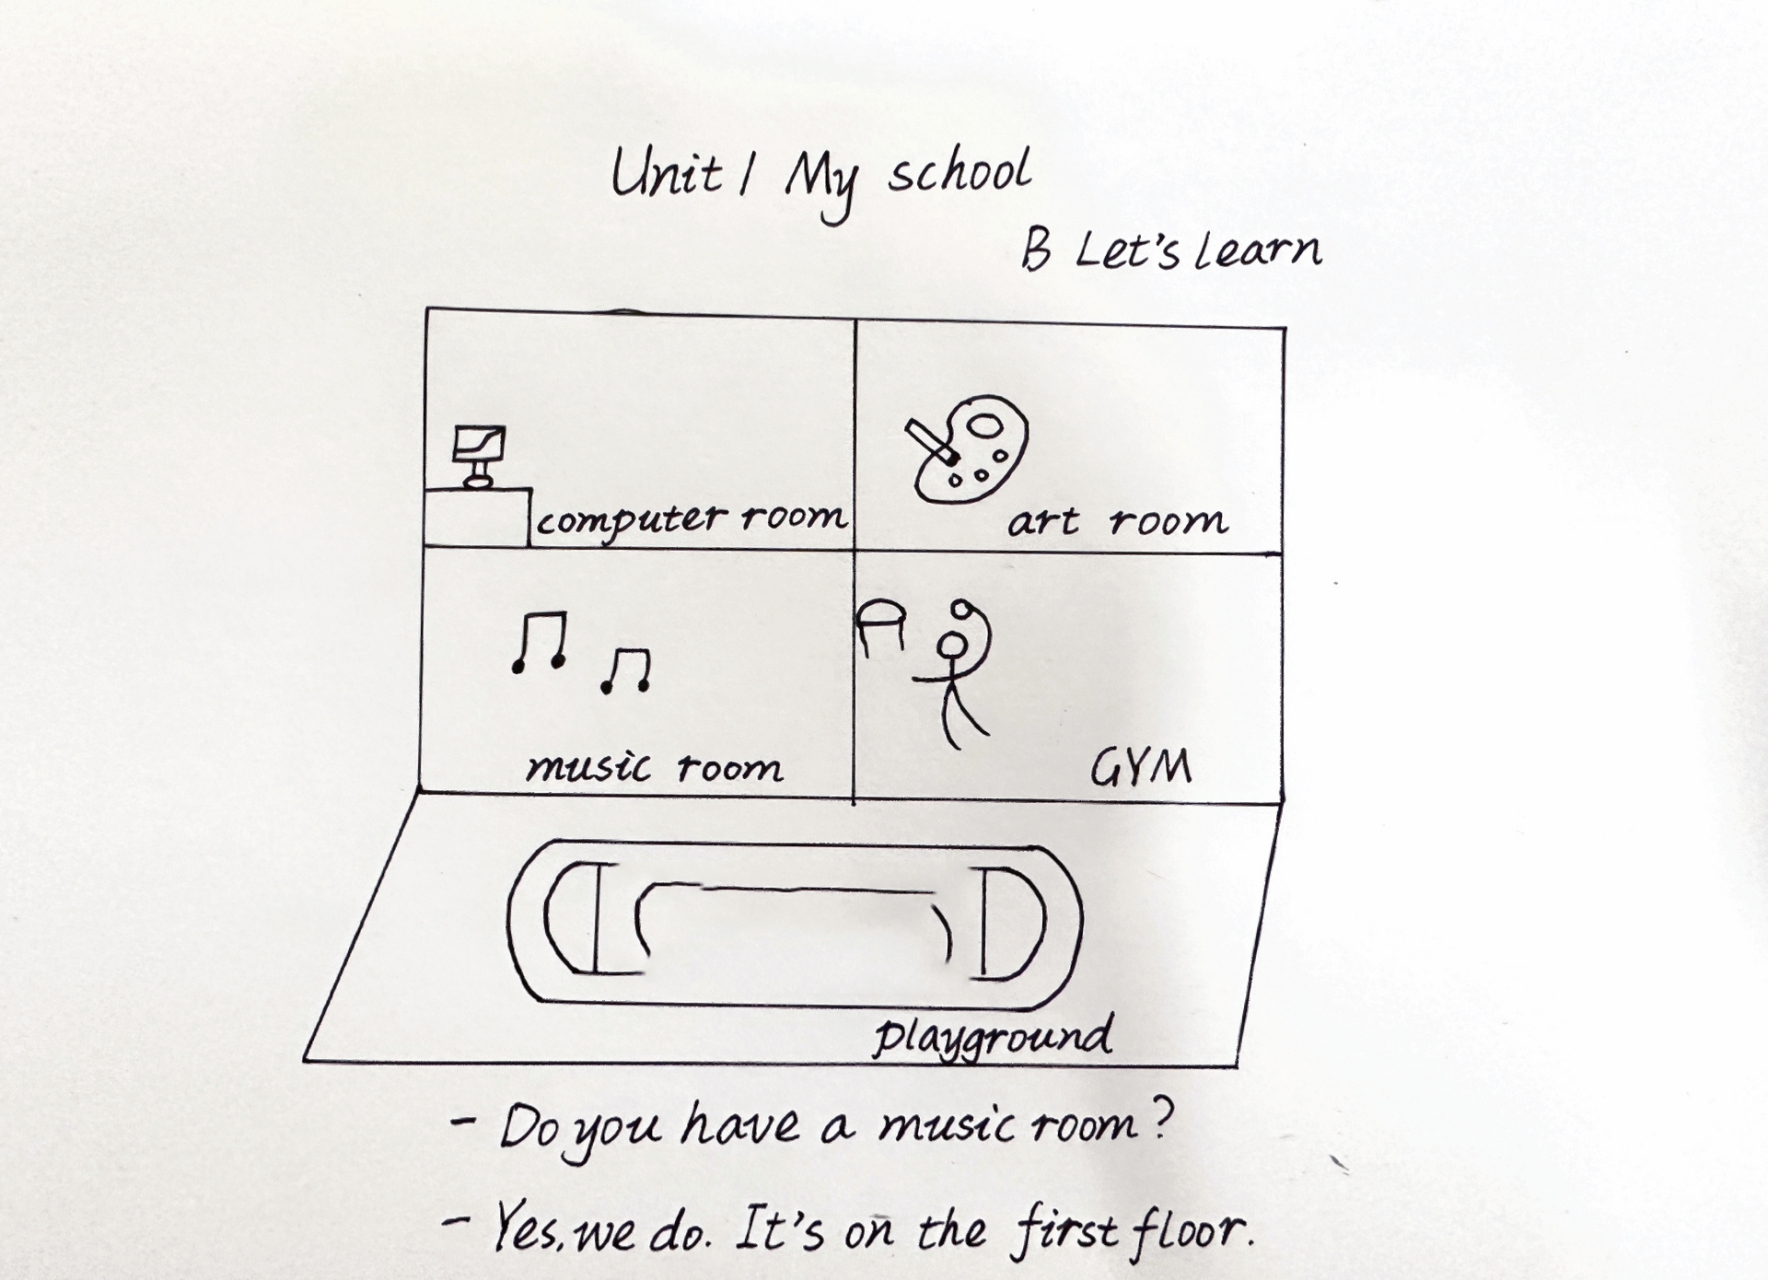 Unit 1 My school
B Let's learn
computer room
art room
music room
GYM
playground
- Do you have a music room?
- Yes, we do. It's on the first floor.